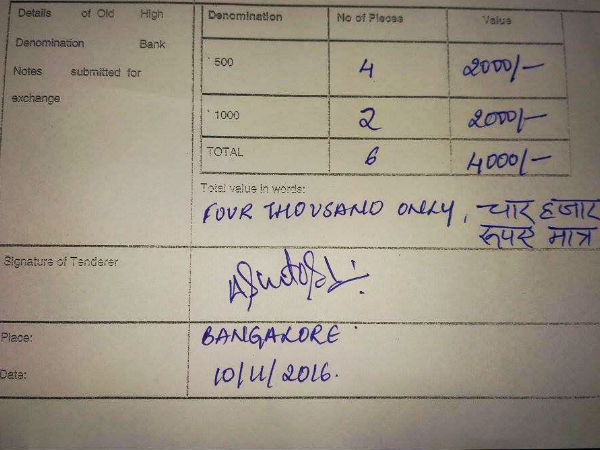 Details of Old High
Denomination Bank
Notes submitted for
exchange
Denomination No of Pieces Value
` 500 4 2000/-
` 1000 2 2000/-
TOTAL 6 4000/-
Total value in words:
FOUR THOUSAND ONLY, चार हजार
रूपए मात्र
Signature of Tenderer
Place: BANGALORE
Date: 10/11/2016.